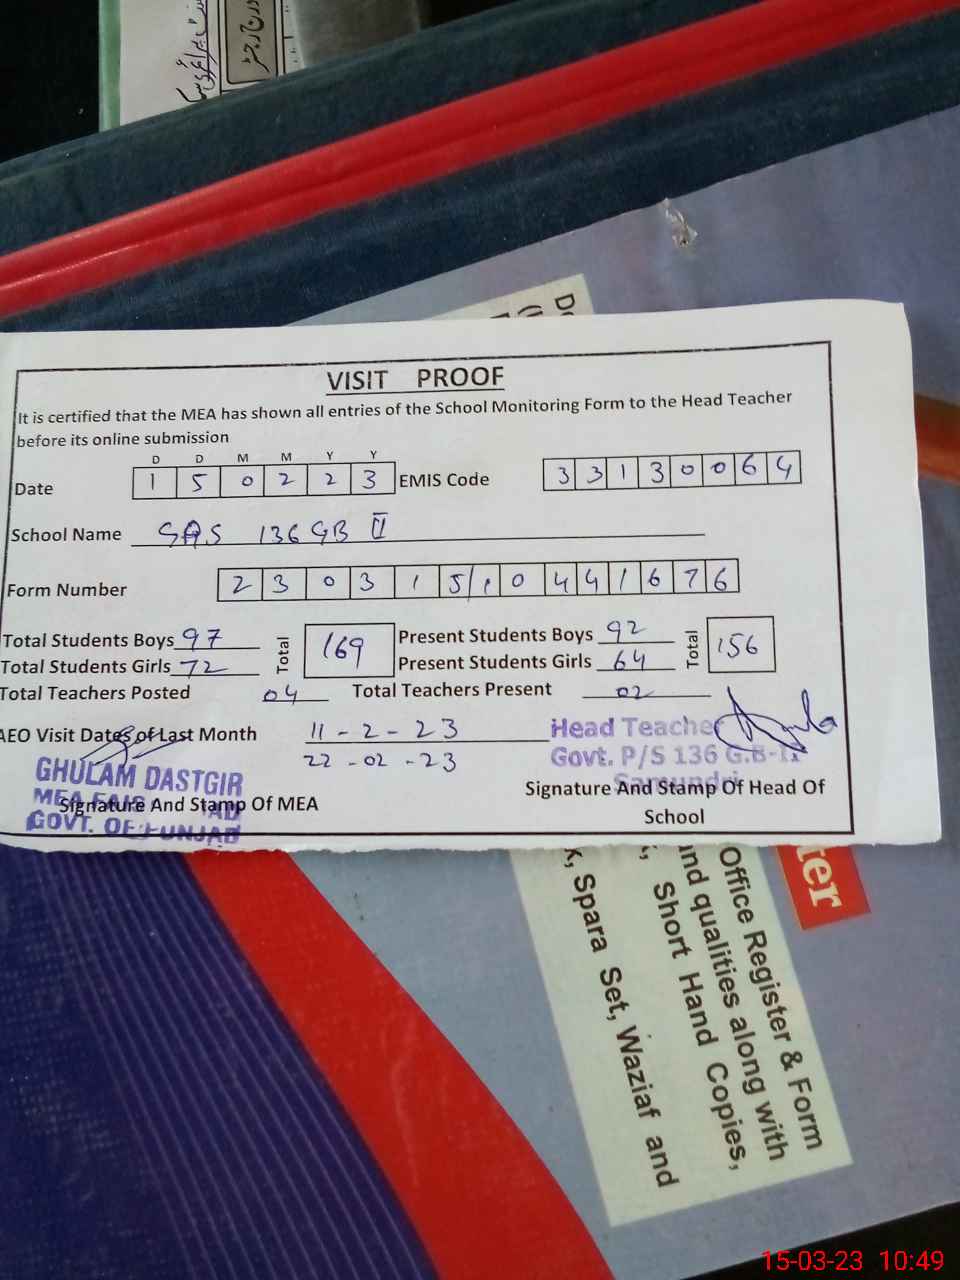 VISIT PROOF
It is certified that the MEA has shown all entries of the School Monitoring Form to the Head Teacher
before its online submission
D D M M Y Y
Date 1 5 0 2 2 3 EMIS Code 3 3 1 3 0 0 6 4
School Name SAS 136 GB II
Form Number 2 3 0 3 1 5 1 0 4 4 1 6 7 6
Total Students Boys 97 Total 169 Present Students Boys 92 Total 156
Total Students Girls 72 Present Students Girls 64
Total Teachers Posted 04 Total Teachers Present 02
AEO Visit Dates of Last Month 11 - 2 - 23
22 - 02 - 23
Head Teacher
Govt. P/S 136 G.B-II
Samundri
GHULAM DASTGIR
MEA
GOVT. OF PUNJAB
Signature And Stamp Of MEA
Signature And Stamp Of Head Of
School
ter
Office Register & Form
and qualities along with
Short Hand Copies,
Spara Set, Waziaf and
15-03-23 10:49